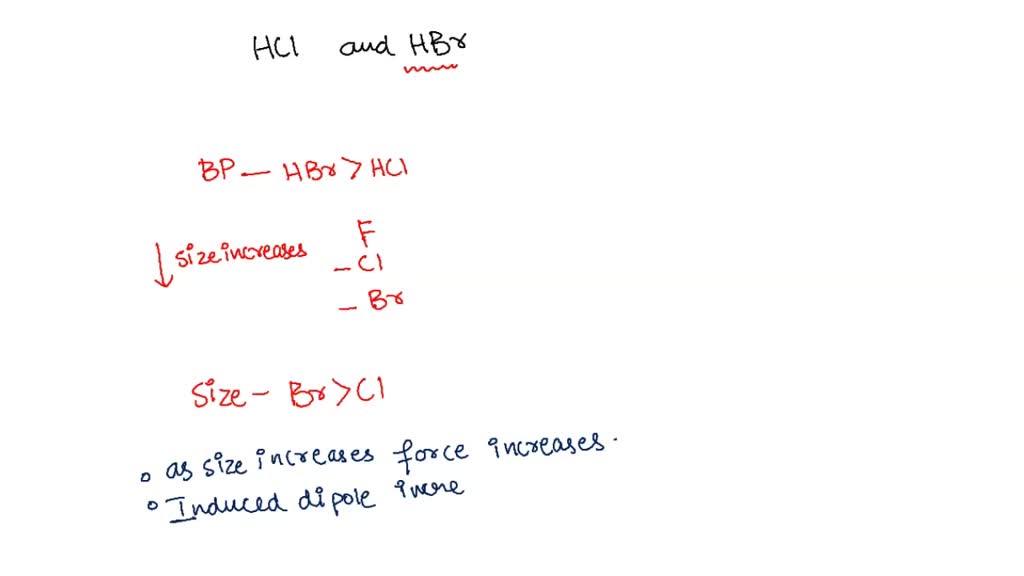 HCl and HBr
BP – HBr > HCl
F
↓ size increases
– Cl
– Br
Size – Br > Cl
• as size increases force increases.
• Induced dipole incre